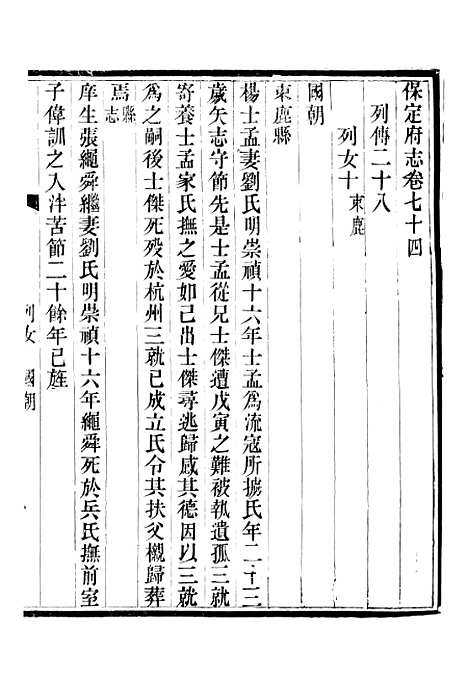 保定府志卷七十四
列傳二十八
列女十 束鹿
國朝
束鹿縣
楊士孟妻劉氏明崇禎十六年士孟爲流寇所擄氏年二十三
歲矢志守節先是士孟從兄士傑遭戊寅之難被執遺孤三就
寄養士孟家氏撫之愛如己出士傑尋逃歸感其德因以三就
爲之嗣後士傑死歿於杭州三就已成立氏令其扶父櫬歸葬
焉 縣志
庠生張繩舜繼妻劉氏明崇禎十六年繩舜死於兵氏撫前室
子偉訓之入泮苦節二十餘年已旌
列女 國朝